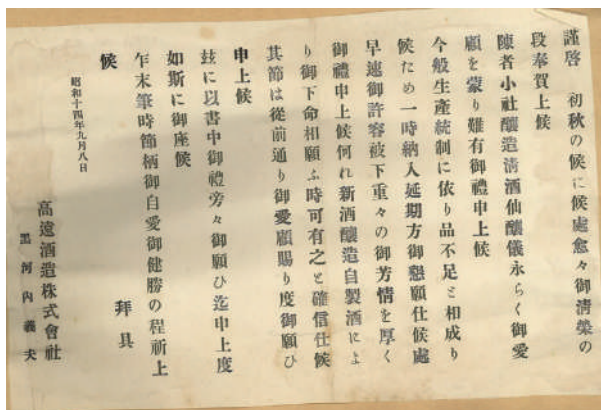 謹啓　初秋の候に候處愈々御淸榮の
段奉賀上候
陳者小社釀造淸酒仙釀儀永らく御愛
顧を蒙り難有御禮申上候
今般生產統制に依り品不足と相成り
候ため一時納入延期方御懇願仕候處
早速御許容被下重々の御芳情を厚く
御禮申上候何れ新酒釀造自製酒によ
り御下命相願ふ時可有之と確信仕候
其節は從前通り御愛顧賜り度御願ひ
申上候
玆に以書中御禮旁々御願ひ迄申上度
如斯に御座候
乍末筆時節柄御自愛御健勝の程祈上
候　拜具
昭和十四年九月八日
高遠酒造株式會社
黑河内義夫